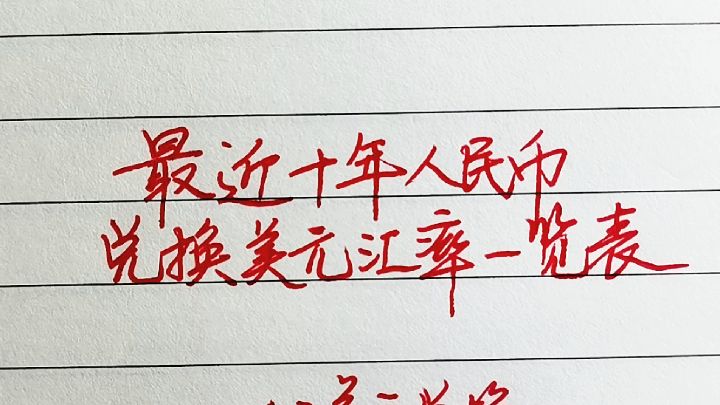 最近十年人民币
兑换美元汇率一览表